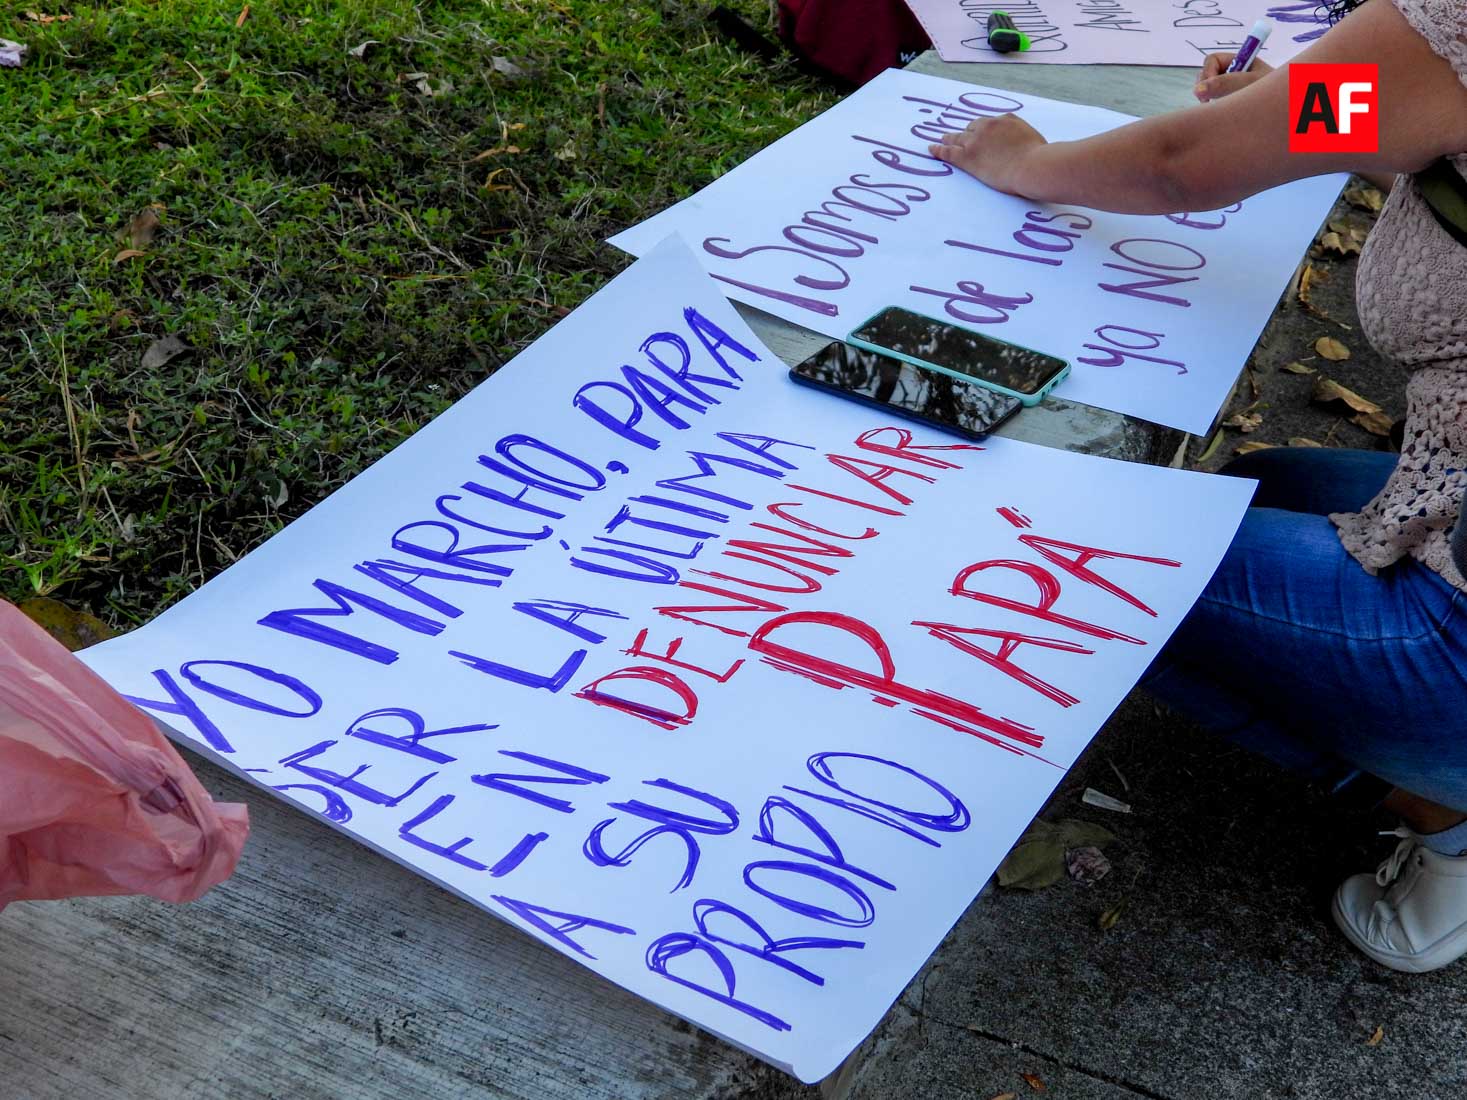 YO MARCHO, PARA
SER LA ÚLTIMA
EN DENUNCIAR
A SU PAPÁ"
PROPIO
¡Somos el grito
de las
ya NO
AF